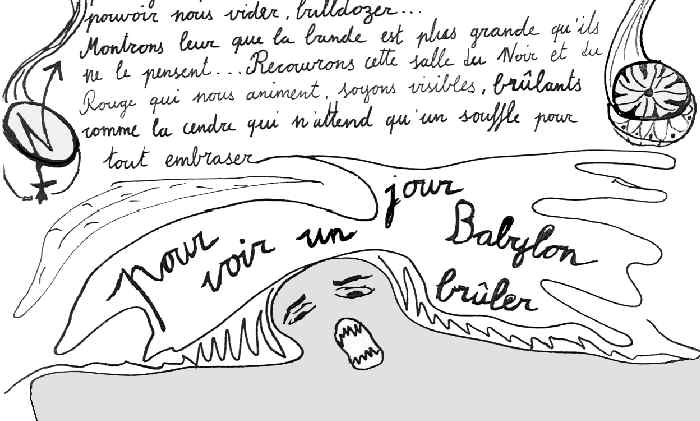 pouvoir nous vider, bulldozer...
Montrons leur que la bande est plus grande qu'ils
ne le pensent... Recouvrons cette salle du Noir et du
Rouge qui nous animent, soyons visibles, brûlants
comme la cendre qui n'attend qu'un souffle pour
tout embraser
pour voir un jour
Babylon
brûler